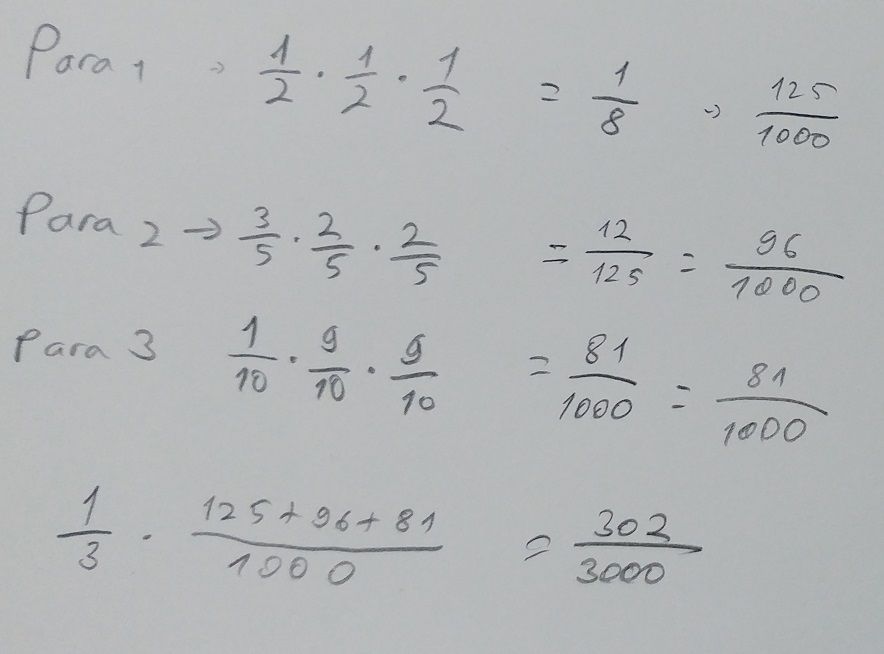 Para 1 → 1/2 · 1/2 · 1/2 = 1/8 → 125/1000
Para 2 → 3/5 · 2/5 · 2/5 = 12/125 = 96/1000
Para 3 1/10 · 9/10 · 9/10 = 81/1000 = 81/1000
1/3 · (125+96+81)/1000 = 302/3000